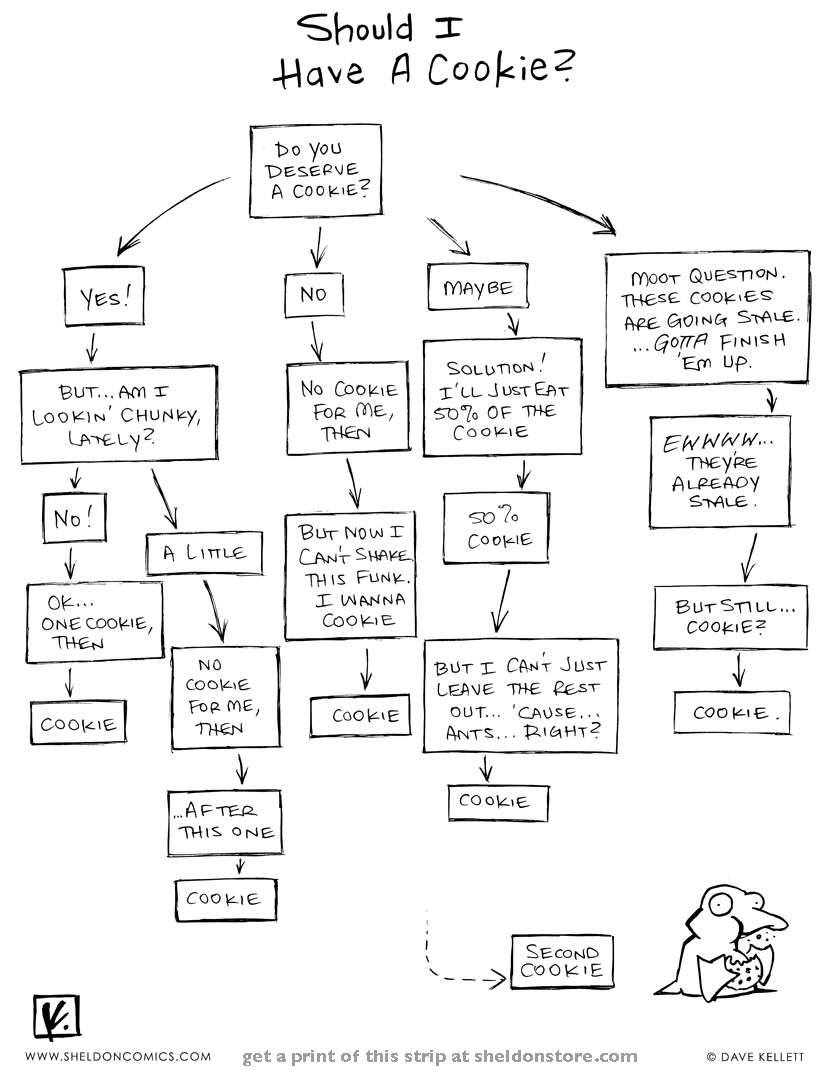 Should I
Have A Cookie?
DO YOU
DESERVE
A COOKIE?
YES!
BUT... AM I
LOOKIN' CHUNKY,
LATELY?
NO!
OK...
ONE COOKIE,
THEN
COOKIE
A LITTLE
NO
COOKIE
FOR ME,
THEN
...AFTER
THIS ONE
COOKIE
NO
NO COOKIE
FOR ME,
THEN
BUT NOW I
CAN'T SHAKE
THIS FUNK.
I WANNA
COOKIE
COOKIE
MAYBE
SOLUTION!
I'LL JUST EAT
50% OF THE
COOKIE
50%
COOKIE
BUT I CAN'T JUST
LEAVE THE REST
OUT... 'CAUSE...
ANTS... RIGHT?
COOKIE
MOOT QUESTION.
THESE COOKIES
ARE GOING STALE.
...GOTTA FINISH
'EM UP.
EWWWW...
THEY'RE
ALREADY
STALE.
BUT STILL...
COOKIE?
COOKIE.
SECOND
COOKIE
WWW.SHELDONCOMICS.COM
get a print of this strip at sheldonstore.com
© DAVE KELLETT